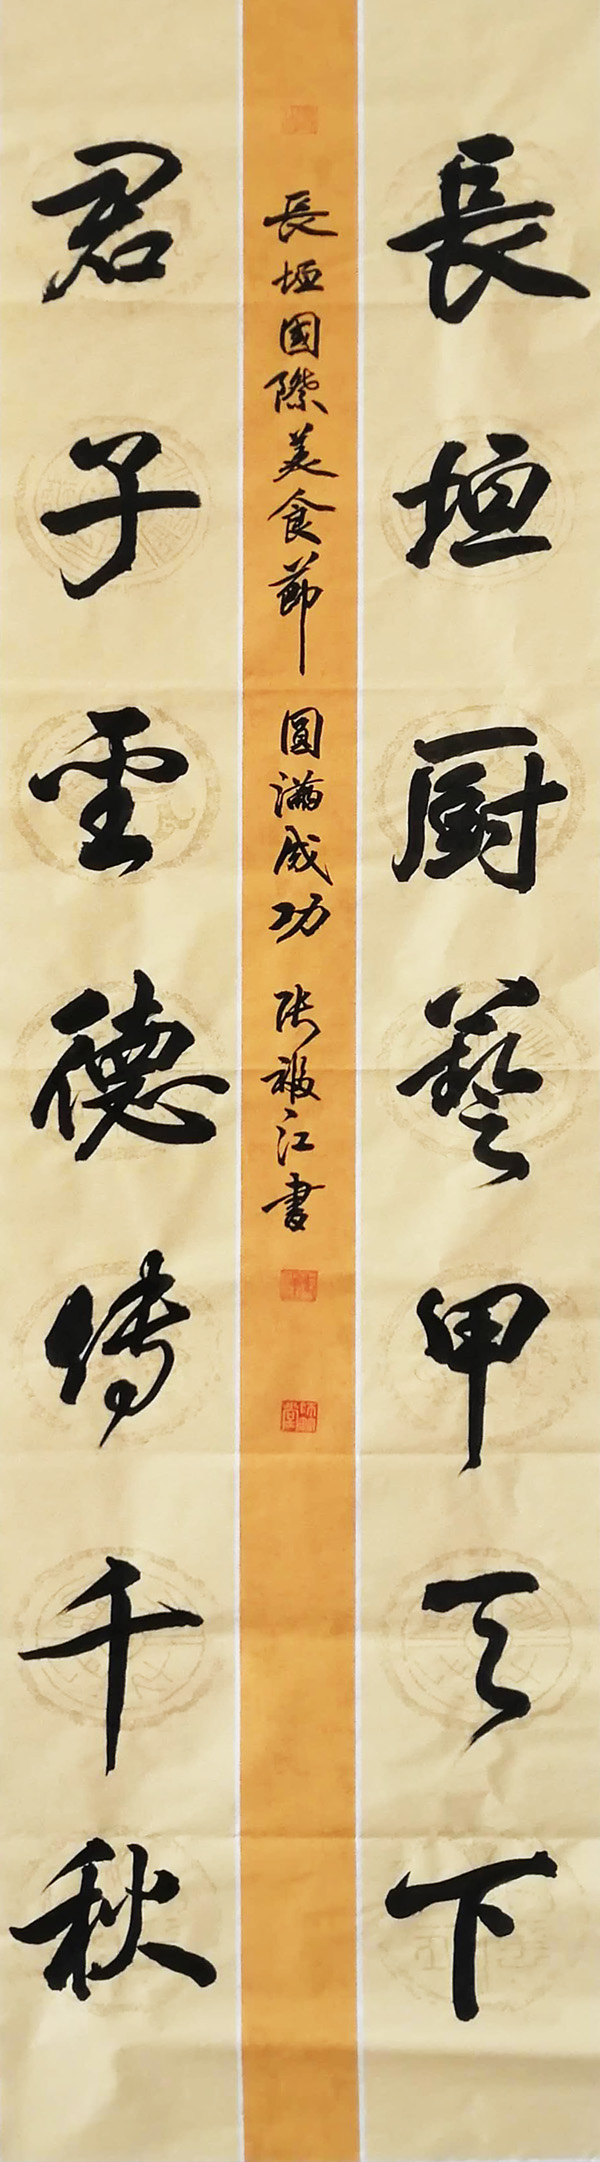 長垣厨藝甲天下
長垣國際美食節 圓滿成功 張江書
君子聖德傳千秋